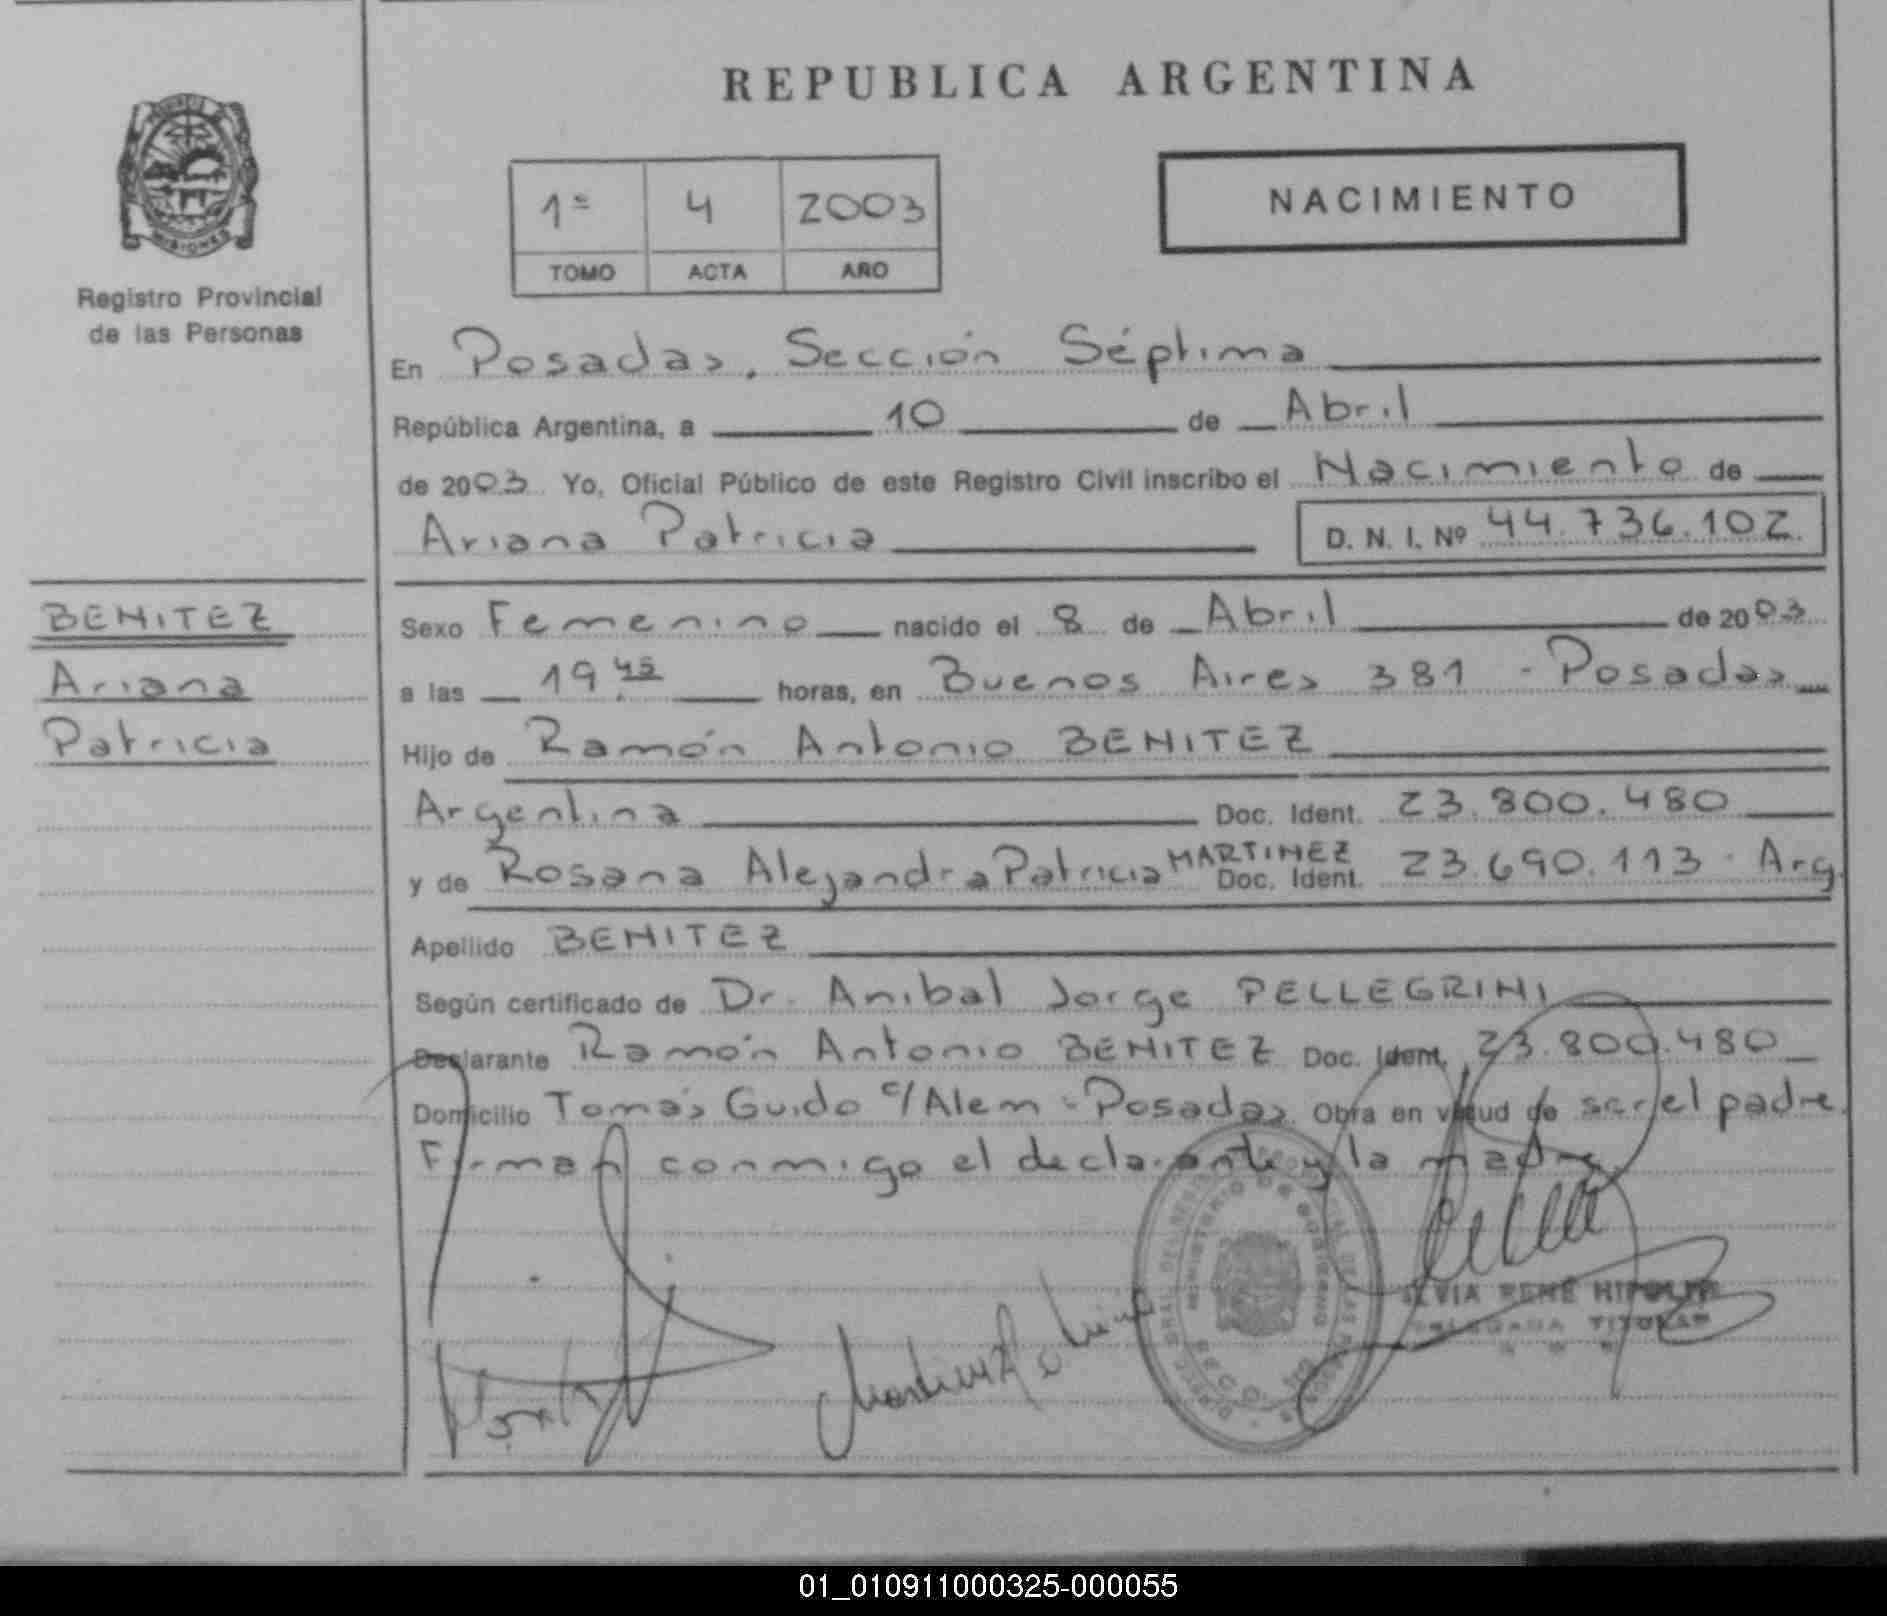 REPUBLICA ARGENTINA
MISIONES
Registro Provincial
de las Personas
1º 4 2003
TOMO ACTA AÑO
NACIMIENTO
En Posadas, Sección Séptima
República Argentina, a 10 de Abril
de 2003 Yo, Oficial Público de este Registro Civil inscribo el Nacimiento de
Ariana Patricia D. N. I. Nº 44.736.102
BENITEZ
Ariana
Patricia
Sexo Femenino nacido el 8 de Abril de 2003
a las 19 45 horas, en Buenos Aires 381 - Posadas
Hijo de Ramón Antonio BENITEZ
Argentina Doc. Ident. 23.800.480
y de Rosana Alejandra Patricia MARTINEZ Doc. Ident. 23.690.113 - Arg.
Apellido BENITEZ
Según certificado de Dr. Anibal Jorge PELLEGRINI
Declarante Ramón Antonio BENITEZ Doc. Ident. 23.800.480
Domicilio Tomás Guido c/Alem - Posadas Obra en virtud de ser el padre.
Firman conmigo el declarante y la madre.
MINISTERIO DE GOBIERNO
SILVIA RENÉ HIPOLITO
DELEGADA TITULAR
01_010911000325-000055